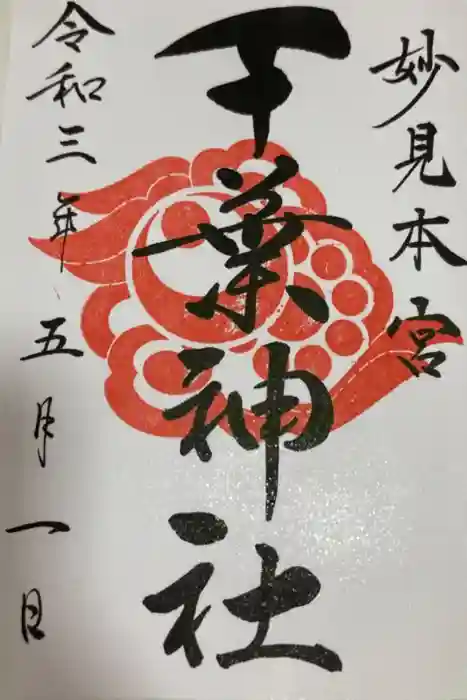 妙見本宮
千葉神社
令和三年五月一日